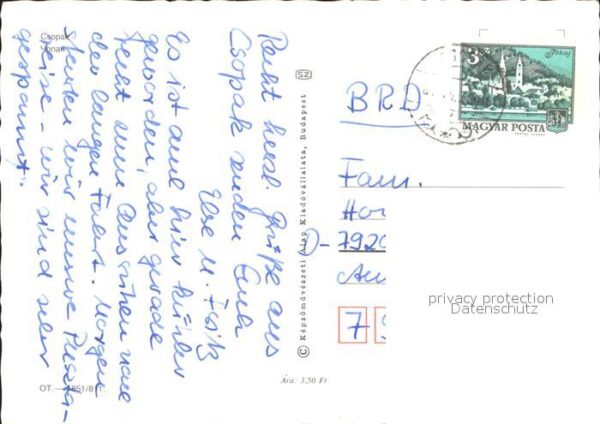 Csopak
Чопак
Recht herzl. Grüße aus
Csopak senden Euch
Else u. Fritz
Es ist auch hier kühler
geworden, aber gerade
recht zum Ausruhen nach
der langen Fahrt. Morgen
starten wir unsere Puszta-
reise - wir sind sehr
gespannt.
OT. — 4851/811.
SZ
© Képzőművészeti Alap Kiadóvállalata, Budapest
Ára: 3,50 Ft
3 Ft
Tokaj
MAGYAR POSTA
BRD
Fam.
Hor
D-7920
Au
privacy protection
Datenschutz
7